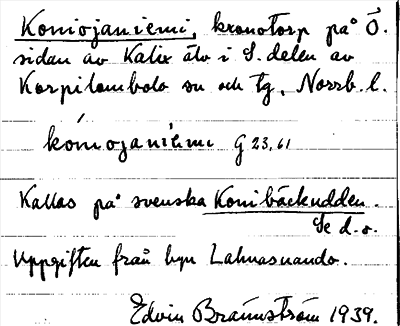 Koniojaniemi, kronotorp på Ö.
sidan av Kalix älv i S. delen av
Korpilombolo sn och tg, Norrb. l.
kóniojaniemi G 23,61
Kallas på svenska Konibäckudden.
Se d. o.
Uppgiften från byn Lahnasuando.
Edvin Brännström 1939.